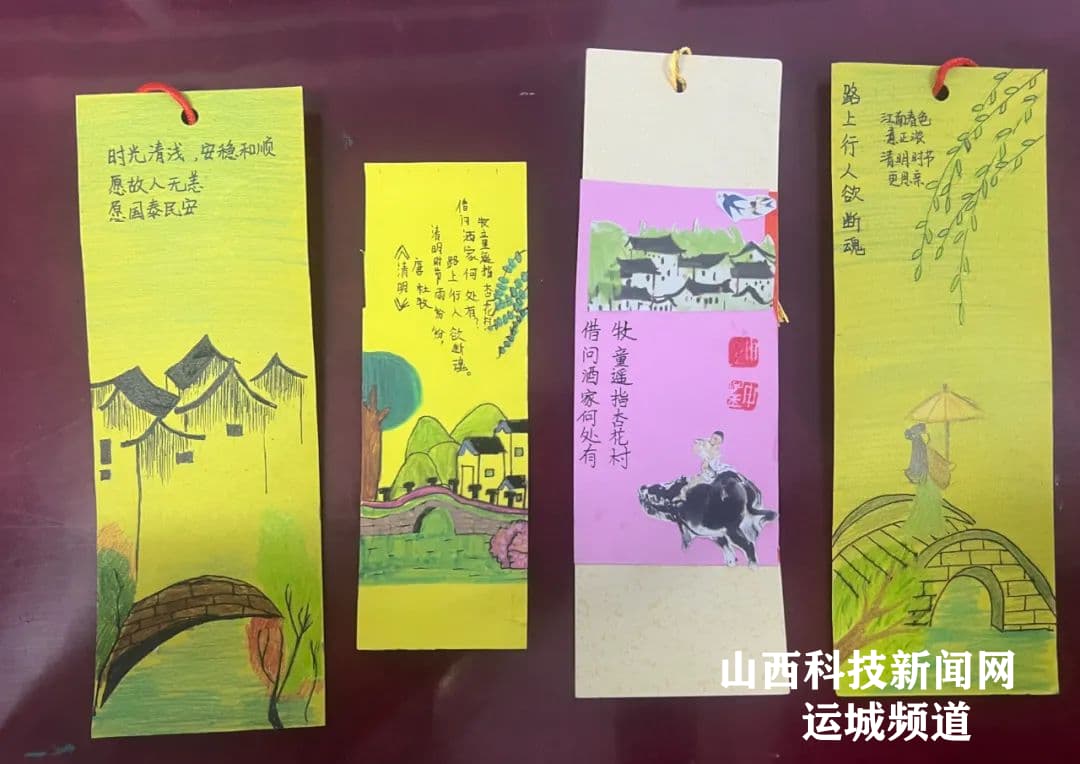 时光清浅，安稳和顺
愿故人无恙
愿国泰民安
《清明》
唐 杜牧
清明时节雨纷纷，
路上行人欲断魂。
借问酒家何处有？
牧童遥指杏花村
借问酒家何处有
牧童遥指杏花村
路上行人欲断魂
江南春色
意正浓
清明时节
更思亲
山西科技新闻网
运城频道